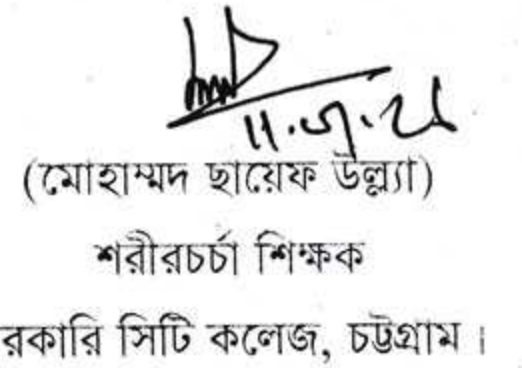 (মোহাম্মদ ছায়েফ উল্ল্যা)
শরীরচর্চা শিক্ষক
রকারি সিটি কলেজ, চট্টগ্রাম।